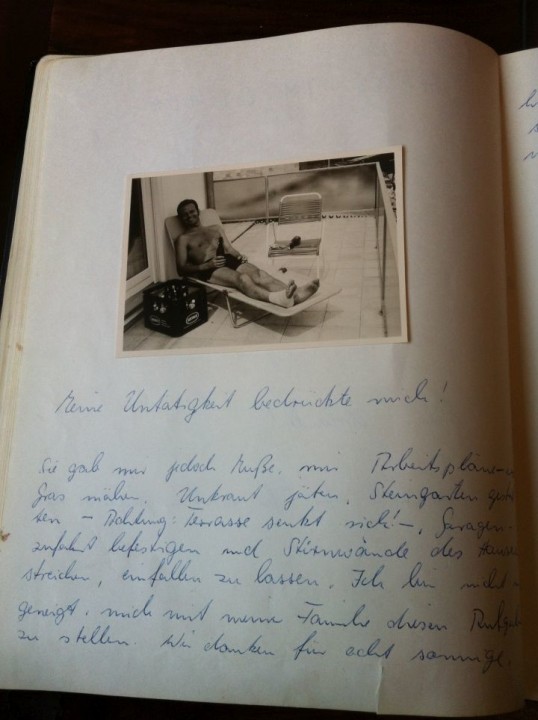 Meine Untätigkeit bedrückte mich!
Sie gab mir jedoch Muße, mir Arbeitspläne
Gras mähen, Unkraut jäten, Steingarten
ten – Achtung: Terrasse senkt sich! –, Garagen-
zufahrt befestigen und Stirnwände des Hauses
streichen, einfallen zu lassen. Ich bin nicht
geneigt, mich mit meine Familie diesen
zu stellen. Wir danken für acht sonnige,